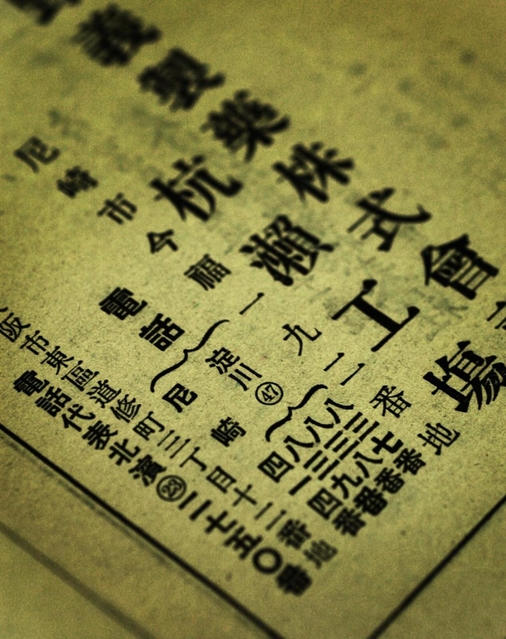 義製藥株式會
杭瀬工場
尼崎市今福一九一一番地
電話 淀川㊼ 八三七番
八三八番
八三九番
尼崎 四一四番
阪市東區道修町三丁目十二番地
電話代表北濱㉓二七五〇番